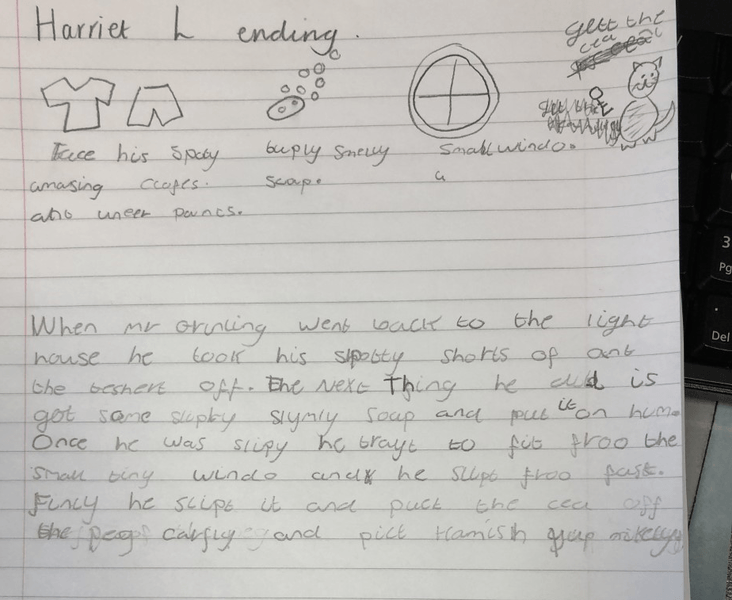 Harriet L ending.
gett the
cea
Tace his spoty
amasing cloges.
ano uneer pants.
buply smelly
soap.
small windo.
a
When mr Grinling went back to the light
house he took his spotty shorts of and
the teshert off. The Next Thing he did is
got some slipky slymly soap and put it on him.
Once he was slipy he trayt to fit froo the
small tiny windo and he slipt froo fast.
Finly he slipt it and puct the cea off
the peg carfly and pict Hamish up
3
Pg
.
Del